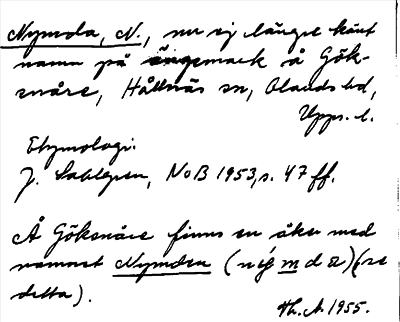 Nymda, N., nu ej längre känt
namn på ängsmark å Gök-
snåre, Hållnäs sn, Olands hd,
Upps. l.
Etymologi:
J. Sahlgren, NoB 1953, s. 47 ff.
Å Göksnåre finns en åker med
namnet Nymden (se
detta).
Th. A. 1955.